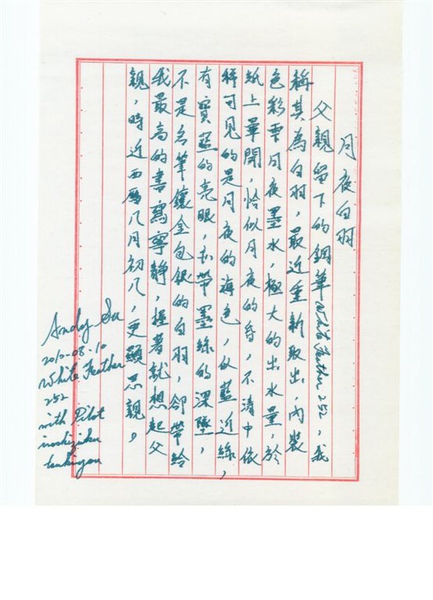 月夜白羽
父親留下的鋼筆White Feather 252，我
稱其為白羽，最近重新取出，內裝
色彩雫月夜墨水，極大的出水量，於
紙上暈開，恰似月夜的昏，不清中依
稀可見的是月夜的海色，似藍近綠，
有寶藍的亮眼，亦帶墨綠的深墜，
不是名筆鑲金包銀的白羽，卻帶給
我最高的書寫寧靜，握者就想起父
親，時近西曆八月初八，更顯思親。
Andy Su
2010-08-10
White Feather
252
with Pilot
iroshizuku
tsukiyou